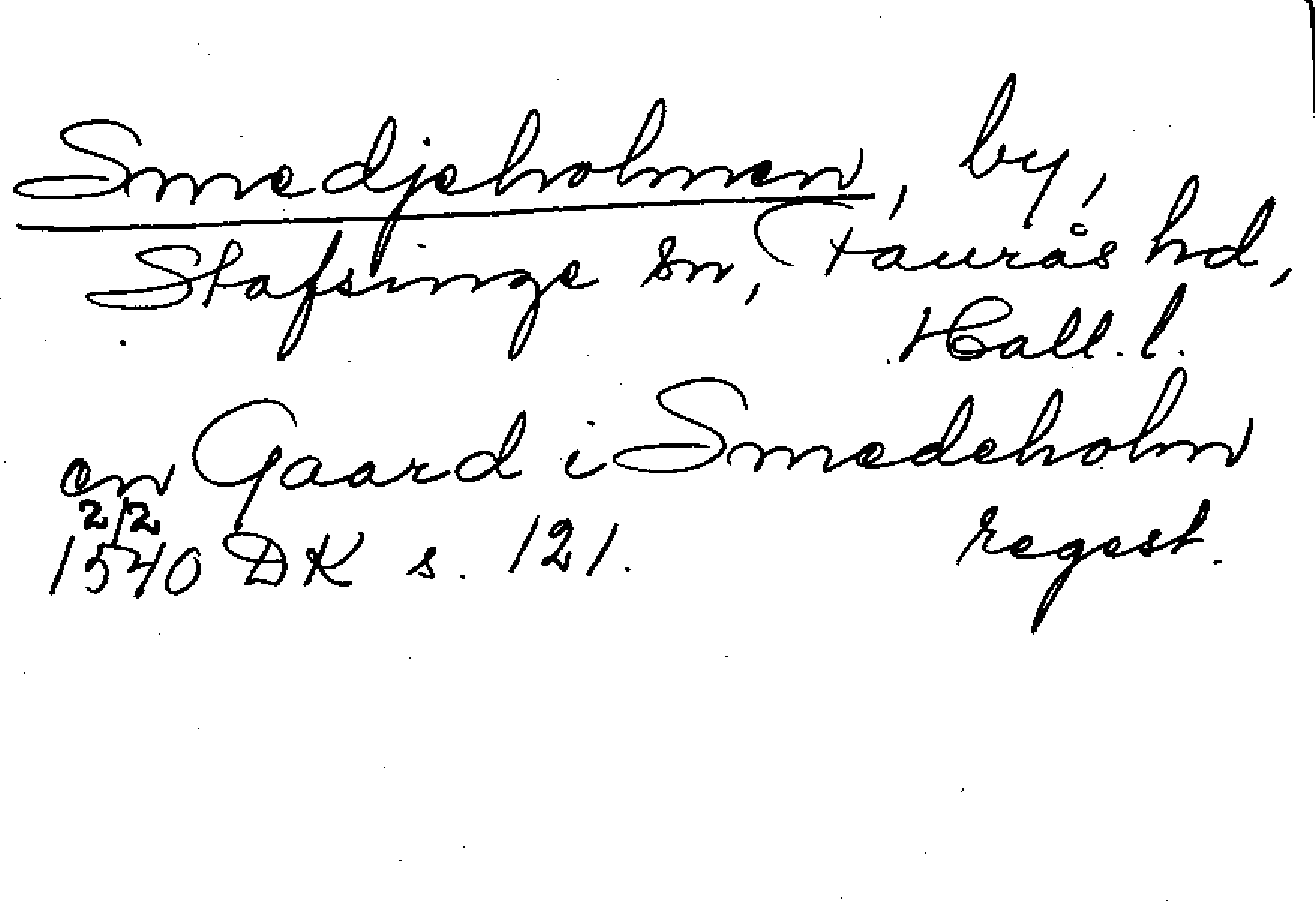 Smedjeholmen, by,
Stafsinge sn, Faurås hd,
Hall. l.
en Gaard i Smedeholm
2/2
1540 DK s. 121. regest.